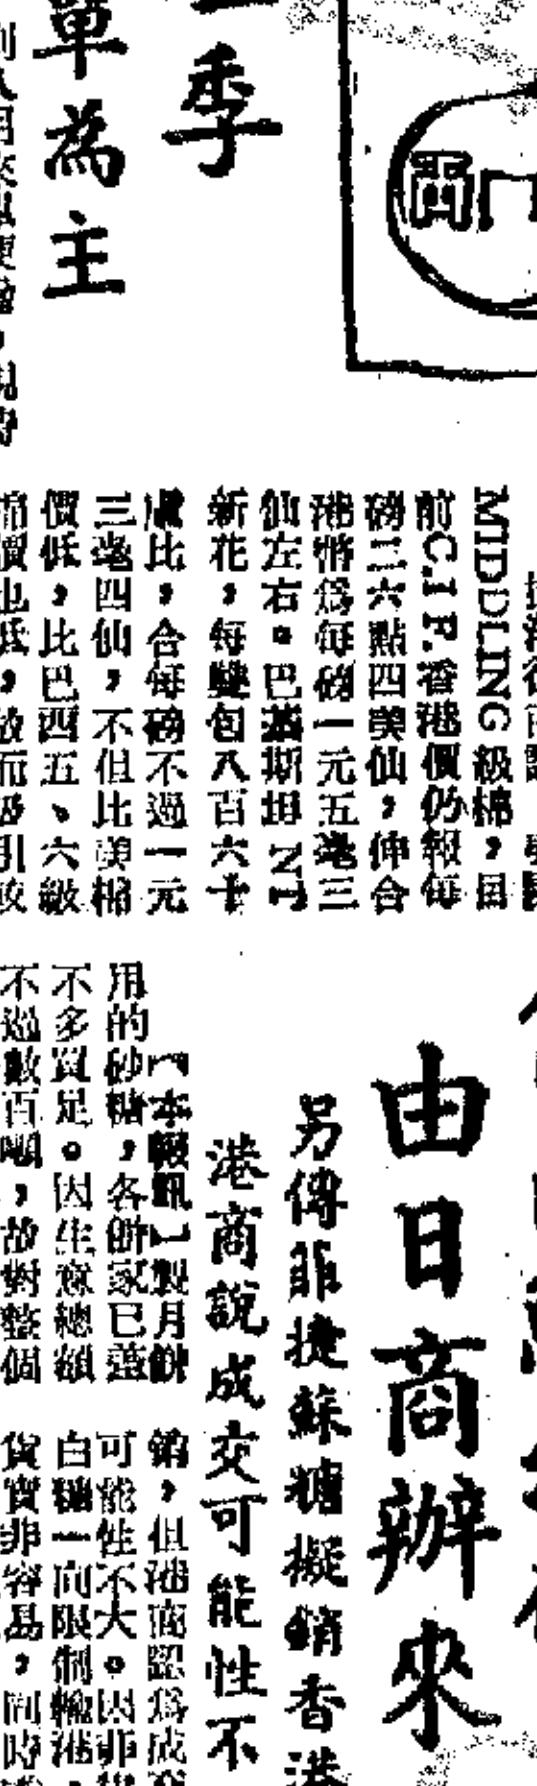 商
季
單為主
MIDDLING級棉，目
前C.I.F.香港價仍報每
磅三六點四美仙，伸合
港幣爲每磅一元五毫三
仙左右。巴基斯坦NT
新花，每雙包八百六十
盧比，合每磅不過一元
三毫四仙，不但比美棉
價低，比巴四五、六級
棉價也低，故而吸引
由日商辦來
另傳菲捷蘇糖擬銷香港
港商說成交可能性不
【本報訊】製月餅
用的砂糖，各餅家已蓋
不多買足。因生意總額
不過數百噸，故對整個
銷，但港商認爲成交
可能性不大。因菲
白糖一向限制輸港，
貨實非容易，同時